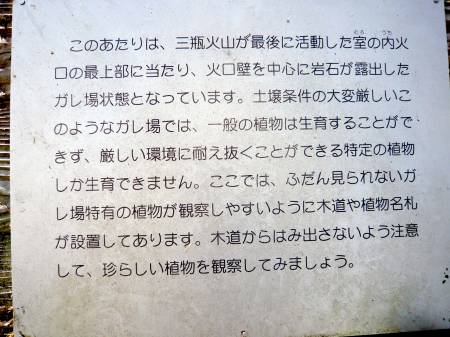 このあたりは、三瓶火山が最後に活動した室の内火
口の最上部に当たり、火口壁を中心に岩石が露出した
ガレ場状態となっています。土壌条件の大変厳しいこ
のようなガレ場では、一般の植物は生育することがで
きず、厳しい環境に耐え抜くことができる特定の植物
しか生育できません。ここでは、ふだん見られないガ
レ場特有の植物が観察しやすいように木道や植物名札
が設置してあります。木道からはみ出さないよう注意
して、珍らしい植物を観察してみましょう。